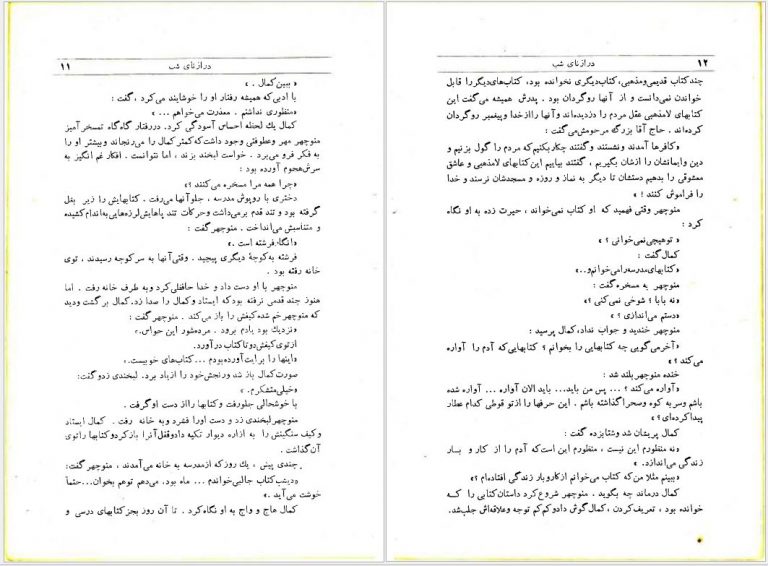 درازنای شب
۱۱
« ببین کمال . »
با ادبی که همیشه رفتار او را خوشایند می‌کرد ، گفت :
«منظوری نداشتم . معذرت می‌خواهم ... »
کمال یك لحظه احساس آسودگی کرد. دررفتار گاه‌گاه تمسخر آمیز
منوچهر مهر وعطوفتی وجود داشت که کمتر کمال را می‌رنجاند وبیشتر او را
به فکر فرو می‌برد . خواست لبخند بزند ، اما نتوانست . افکار غم انگیز به
سرش‌هجوم آورده بود :
«چرا همه مرا مسخره می‌کنند ؟»
دختری با روپوش مدرسه ، جلوآنها می‌رفت . کتابهایش را زیر بغل
گرفته بود و تند قدم برمی‌داشت وحرکات تند پاهایش لرزه‌هایی به‌اندام کشیده
و متناسبش می‌انداخت . منوچهر گفت :
«انگار فرشته است .»
فرشته به‌کوچهٔ دیگری پیچید . وقتی‌آنها به سر کوچه رسیدند ، توی
خانه رفته بود .
منوچهر با او دست داد و خدا حافظی‌کرد وبه طرف خانه رفت . اما
هنوز چند قدمی نرفته بود که ایستاد وکمال را صدا زد. کمال بر گشت ودید
که منوچهر خم شده کیفش را باز می‌کند . منوچهر گفت :
«نزدیك بود یادم برود . مرده‌شور این حواس.»
ازتوی کیفش دو تا کتاب در آورد.
«اینها را برایت آورده بودم ... کتاب‌های خوبیست .»
صورت‌کمال باز شد ورنجش‌خود را ازیاد برد. لبخندی زدو گفت:
«خیلی‌متشکرم .»
با خوشحالی جلورفت وکتابها رااز دست او گرفت .
منوچهر لبخندی زد و دست اورا فشرد وبه خانه رفت . کمال ایستاد
و کیف سنگینش را به ازاره دیوار تکیه دادوقفل‌آنرا باز کرد و کتابها راتوی
آن گذاشت .
چندی پیش ، یك روز که ازمدرسه به خانه می‌آمدند ، منوچهر گفت:
«دیشب کتاب جالبی‌خواندم ... ماه بود. می‌دهم توهم بخوان... حتماً
خوشت می‌آید .»
کمال هاج و واج به او نگاه کرد . تا آن روز بجز کتابهای درسی و
درازنای شب
۱۲
چند کتاب قدیمی ومذهبی، کتاب دیگری نخوانده بود، کتاب‌های‌دیگر را قابل
خواندن نمی‌دانست و از آنها روگردان بود . پدرش همیشه می‌گفت این
کتابهای لامذهبی عقل مردم را دزدیده‌اند وآنها رااز خدا و پیغمبر رو گردان
کرده‌اند . حاج آقا بزرگ مرحومش می‌گفت :
«کافرها آمدند ونشستند و گفتند چکار بکنیم که مردم را گول بزنیم و
دین وایمانشان را ازشان بگیریم ، گفتند بیاییم این کتاب‌های لامذهبی و عاشق
معشوقی را بدهیم دستشان تا دیگر به نماز و روزه و مسجدشان نرسند و خدا
را فراموش کنند ! »
منوچهر وقتی فهمید که او کتاب نمی‌خواند ، حیرت زده به او نگاه
کرد :
« توهیچی‌نمی‌خوانی ؟ »
کمال گفت :
«کتابهای‌مدرسه رامی‌خوانم و..»
منوچهر به مسخره گفت :
«نه بابا ؟ شوخی نمی‌کنی ؟»
«دستم می‌اندازی ؟ »
منوچهر خندید و جواب نداد، کمال پرسید :
«آخر می‌گویی چه کتابهایی را بخوانم ؟ کتابهایی که آدم را آواره
می‌کند ؟ »
خنده منوچهر بلند شد :
«آواره می‌کند ؟ ... پس من باید... باید الان آواره ... آواره شده
باشم وسر به کوه وصحرا گذاشته باشم . این حرفها را از تو قوطی کدام عطار
پیدا کرده‌ای ؟ »
کمال پریشان شد وشتابزده گفت :
«نه منظورم این نیست ، منظورم این است که آدم را از کار و بار
زندگی می‌اندازد.»
«ببینم مثلا من که کتاب می‌خوانم از کاروبار زندگی افتاده‌ام ؟ »
کمال درماند چه بگوید . منوچهر شروع کرد داستان کتابی را که
خوانده بود ، تعریف کردن ، کمال گوش داد و کم کم توجه وعلاقه‌اش جلب‌شد.